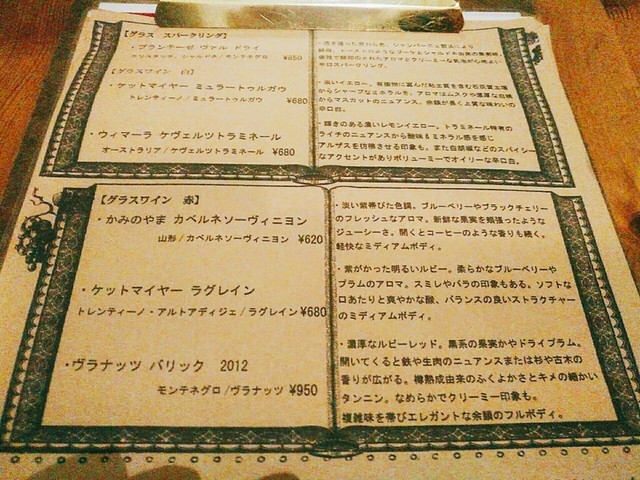 【グラス スパークリング】
・ブランテーゼ ヴァル ドライ
モンテネグロ
¥850
【グラスワイン 白】
・ケットマイヤー ミュラートゥルガウ
トレンティーノ/ミュラートゥルガウ ¥680
・ウィマーラ ケヴェルツトラミネール
オーストラリア/ケヴェルツトラミネール ¥680
辛口スパークリング。
・淡いイエロー。有機物に富んだ粘土質を含む石灰質土壌
からシャープなミネラルを。アロマはムスクや濃厚な白桃
からマスカットのニュアンス。余韻が長く上質な味わいの
辛口白。
・輝きのある濃いレモンイエロー。トラミネール特有の
ライチのニュアンスから酸味&ミネラル感を感じ
アルザスを彷彿させる印象も。また白胡椒などのスパイシー
なアクセントがありボリューミーでオイリーな辛口白。
【グラスワイン 赤】
・かみのやま カベルネソーヴィニヨン
山形/カベルネソーヴィニヨン ¥620
・ケットマイヤー ラグレイン
トレンティーノ・アルトアディジェ/ラグレイン ¥680
・ヴラナッツ バリック 2012
モンテネグロ/ヴラナッツ ¥950
・淡い紫帯びた色調。ブルーベリーやブラックチェリー
のフレッシュなアロマ。新鮮な果実を頬張ったような
ジューシーさ。開くとコーヒーのような香りも続く。
軽快なミディアムボディ。
・紫がかった明るいルビー。柔らかなブルーベリーや
プラムのアロマ。スミレやバラの印象もある。ソフトな
口あたりと爽やかな酸、バランスの良いストラクチャー
のミディアムボディ。
・濃厚なルビーレッド。黒系の果実かやドライプラム。
開いてくると鉄や生肉のニュアンスまたは杉や古木の
香りが広がる。樽熟成由来のふくよかさとキメの細かい
タンニン。なめらかでクリーミー印象も。
複雑味を帯びエレガントな余韻のフルボディ。